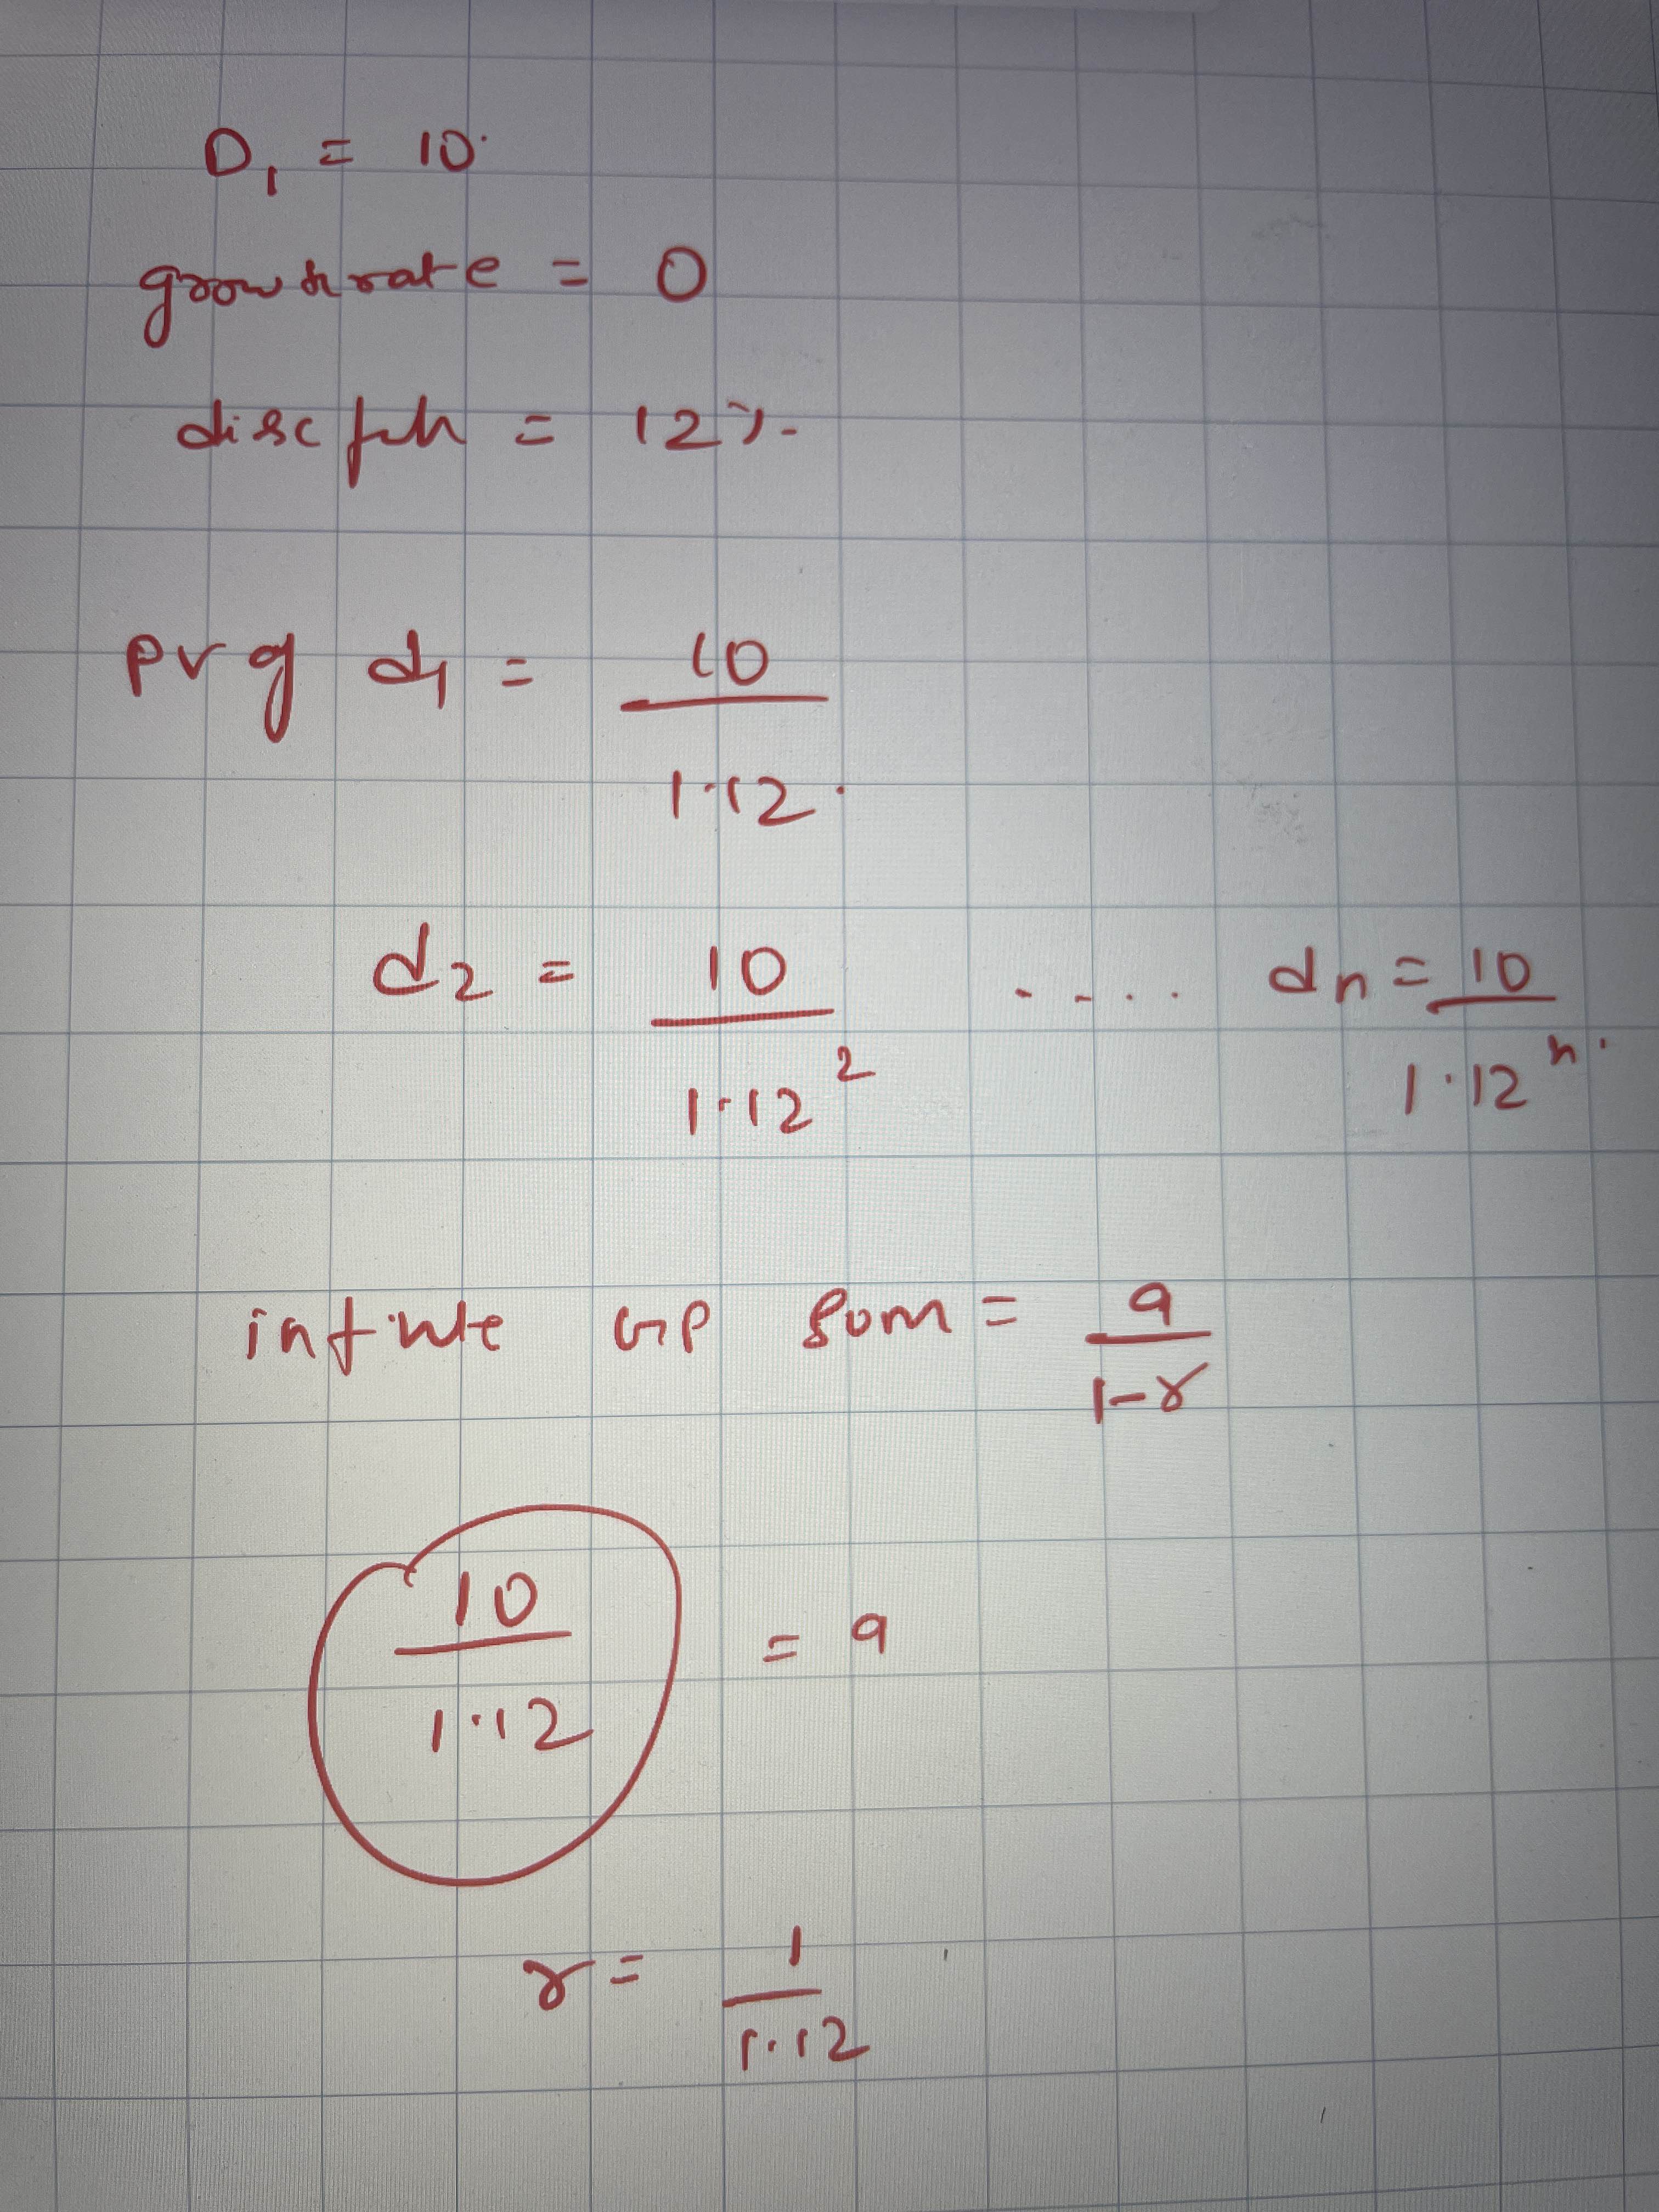 D₁ = 10
growth rate = 0
disc = 12%
PV of d₁ = 10
1.12
d₂ = 10
1.12²
.... dn = 10
1.12ⁿ
infinite GP sum = a
1-r
10
1.12
= a
r = 1
1.12